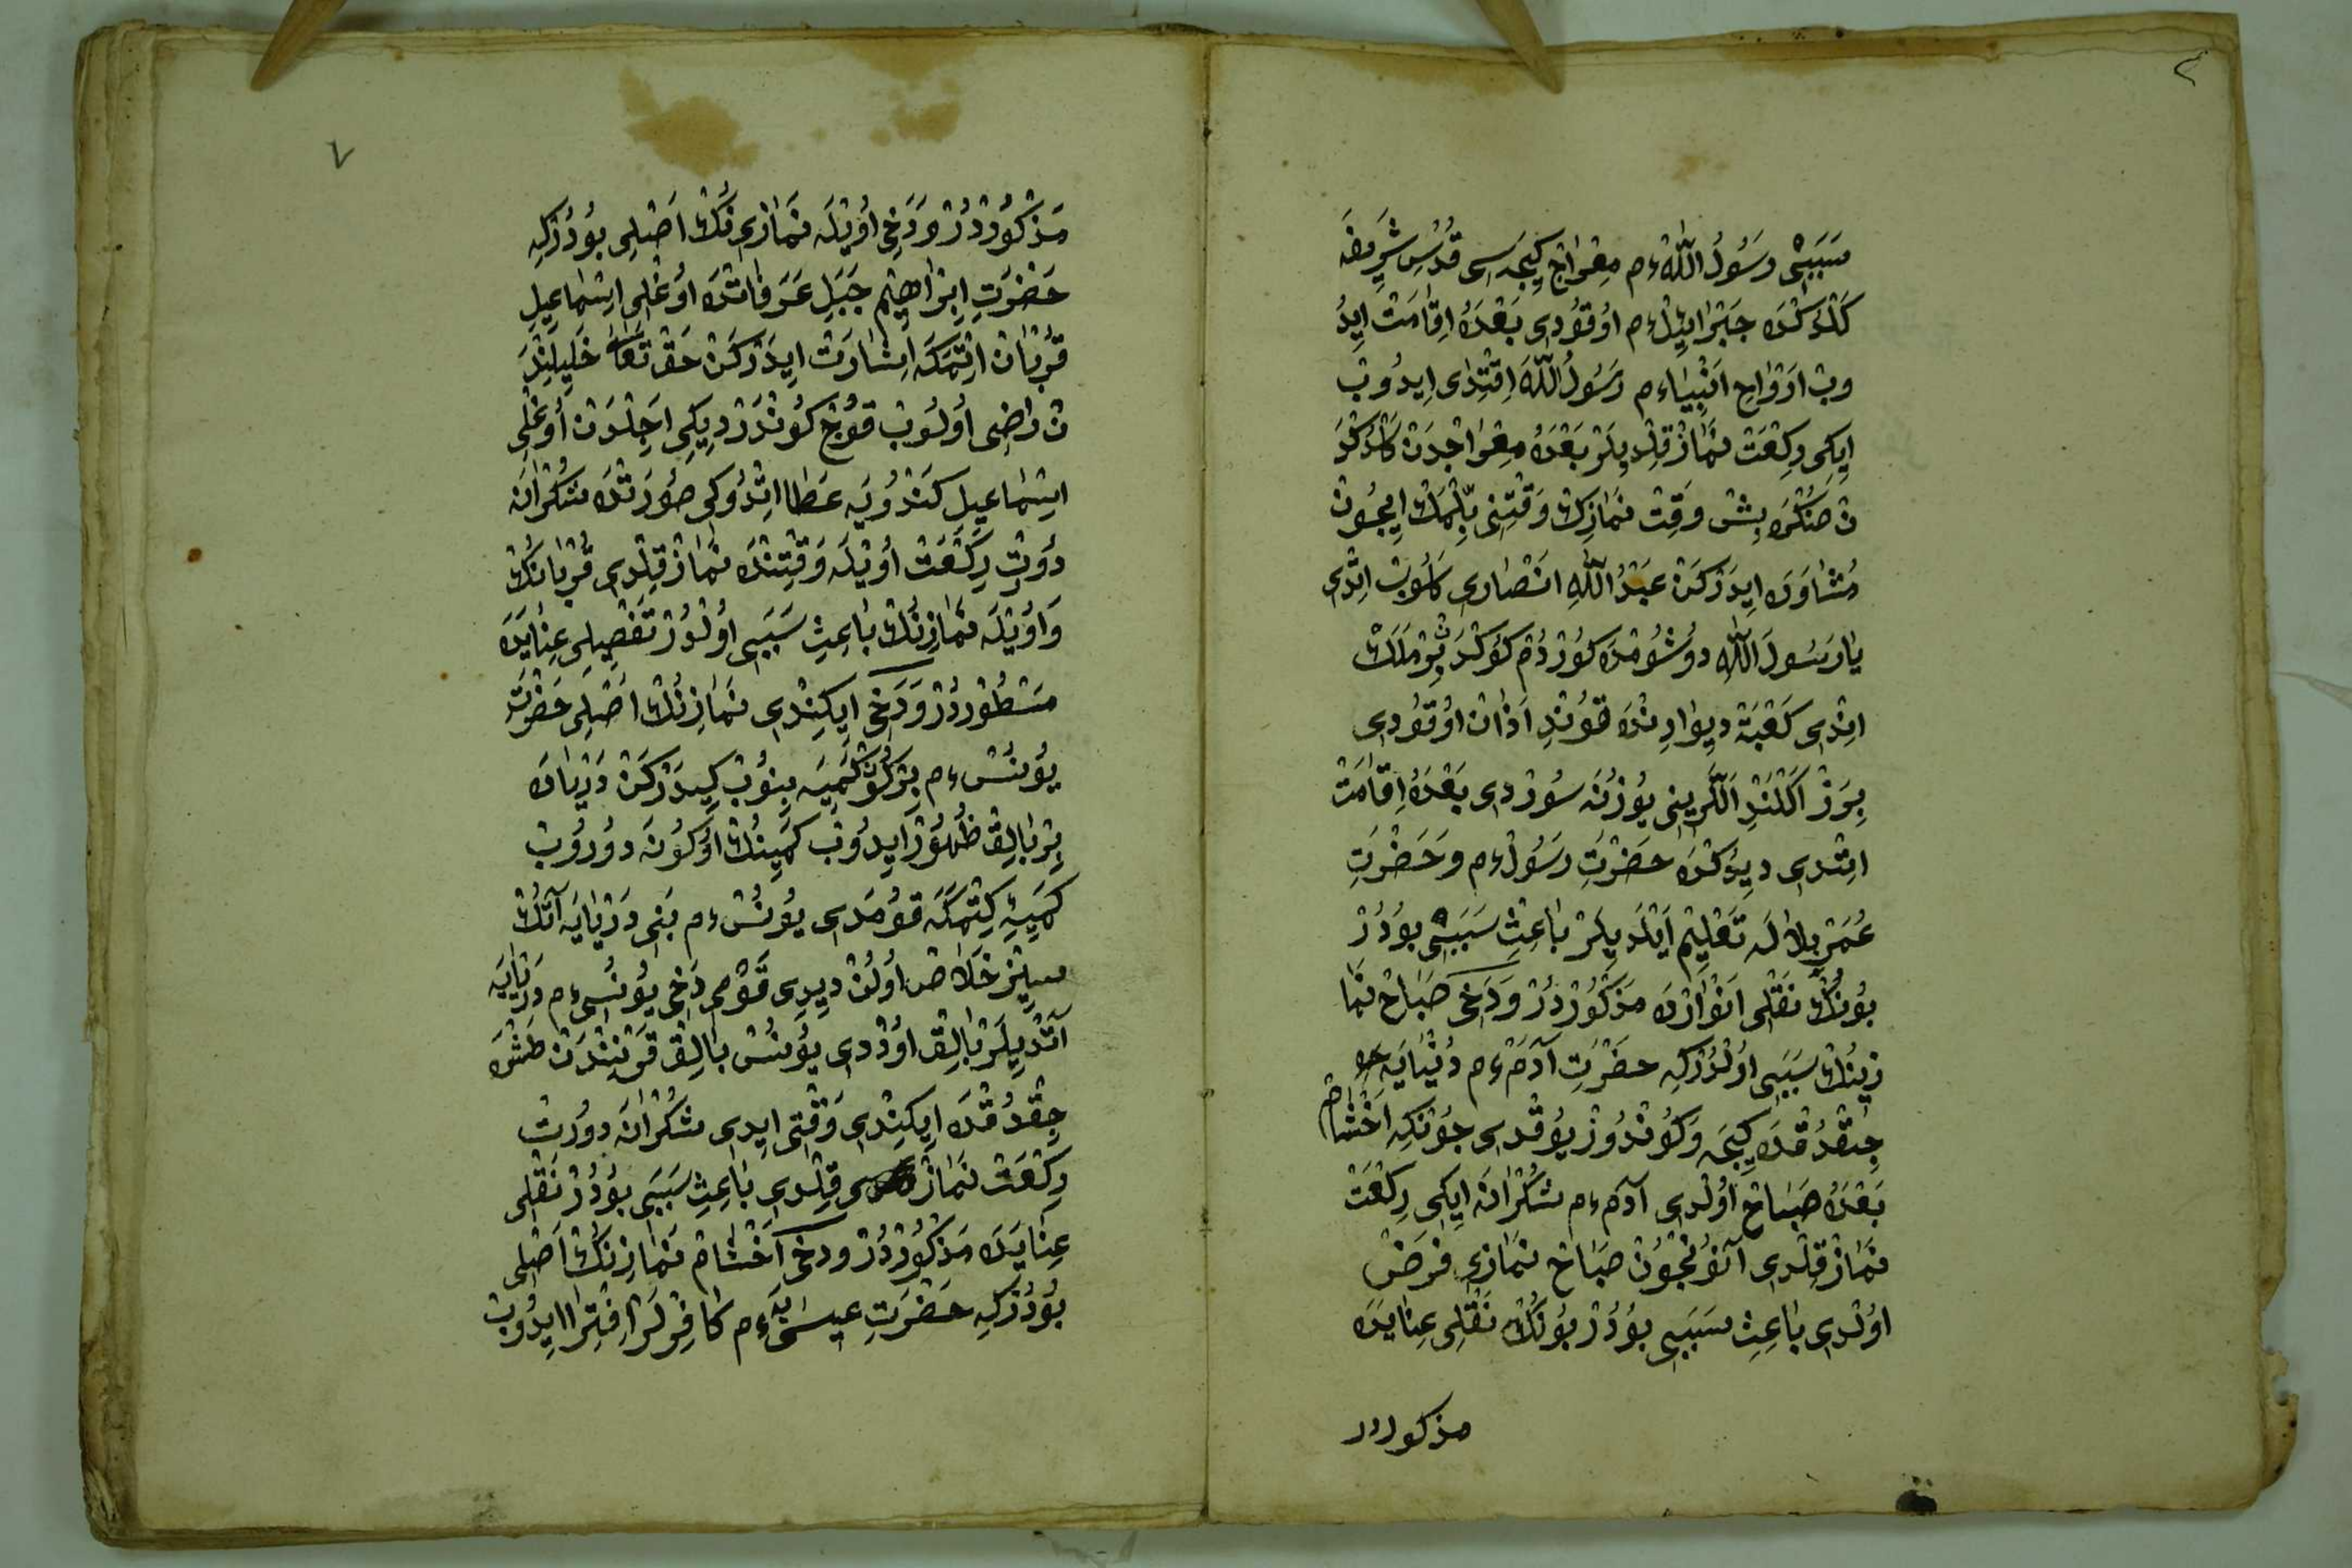 ٢
سَبَبْى رَسُولُ اللّٰهْ ءم مِعْرَاجْ كِيجَه سِى قُدْسِ شَرِيفَه
كَلْدُكْدَه جَبْرَائِيْلْ ءم اُوقُودِى بَعْدَهُ اِقَامَتْ اِيدُ
وبْ اَرْوَاحِ اَنْبِيَاء م رَسُولُ اللّٰهَ اِقْتِدَاى اِيدُوبْ
اِيكِى رِكْعَتْ نَمَازْ قِلْدِيلَرْ بَعْدَهُ مِعْرَاجْدَنْ كَلْدُكْدَ
نْ صُكْرَه بِشْ وَقِتْ نَمَازِكْ وَقْتِنِى بِلْمَكْ اِيچُونْ
مُشَاوَرَه اِيدَرْكَنْ عَبْدُ اللّٰهِ اَنْصَارِى كَلُوبْ اِتْدِى
يَارَسُولَ اللّٰه دُوشُومْدَه كُورْدُمْ كُوكْدَنْ بِرْ مَلَكْ
اِنْدِى كَعْبَهْ دِيوَارِنْدَه قُونْدِ اَذَانْ اوُقُودِى
بِرَزْ اَكْلَنْدِ اَلْلَرِينِى يُوزُنَه سُورْدِى بَعْدَهُ اِقَامَتْ
اِتْدِى دِيُوكْدَه حَضْرَتِ رَسُولْ ءم وَحَضْرَتِ
عُمَرْ بِلَالَه تَعْلِيمْ اَيْلَدِيلَرْ بَاعِثِ سَبَبْى بُودُرْ
بُونُكْ نَقْلِى اَنْوَارْدَه مَذْكُورْدُرْ وَدَخِى صَبَاحْ نَمَا
زِينُكْ سَبَبِى اوُلْدُرْكِه حَضْرَتِ آدَمْ ءم دُنْيَايَه
چِيقْدُقْدَه كِيجَه وَكُونْدُوزْ يُوقْدِى چُونْكِه اَخْشَامْ
بَعْدَهُ صَبَاحْ اوُلْدِى آدَمْ ءم شُكْرَانَه اِيكِى رِكْعَتْ
نَمَازْ قِلْدِى آنُوكْچُونْ صَبَاحْ نَمَازِى فَرْضْ
اوُلْدِى بَاعِثِ سَبَبِى بُودُرْ بُونُكْ نَقْلِى عِنَايَه دَه
مذكوردر
٧
مَذْكُورْدُرْ وَدَخِى اُويْلَه نَمَازِى نُكْ اَصْلِى بُودُرْكِه
حَضْرَتِ اِبْرَاهِيْم جَبَلِ عَرَفَاتْدَه اوُغْلِى اِسْمَاعِيلِ
قُرْبَانْ اِتْمَكَه اِشَارَتْ اِيدَرْكَنْ حَقْ تَعَالَى خَلِيلِنْدَ
نْ رَاضِى اوُلُوبْ قُوچْ كُونْدَرْدِيكِى اَجِلْدَنْ اُوغْلِى
اِسْمَاعِيلِ كَنْدُويَه عَطَا اِتْدُوكِى صُورَتْدَه شُكْرَانَه
دُوتْ رِكْعَتْ اُويْلَه وَقْتِنْدَه نَمَازْ قِلْدِى قُرْبَانُكْ
وَاُويْلَه نَمَازِنُكْ بَاعِثِ سَبَبِى اوُلْدُرْ تَفْصِيلِى عِنَايَدَه
مَسْطُورْدُرْ وَدَخِى اِيكِنْدِى نَمَازِنُكْ اَصْلِى حَضْرَتِ
يُونُسْ ءم بِرْكُونْ كَمِيَه بِنُوبْ كِيدَرْكَنْ دَرْيَادَه
بِرْ بَالِقْ ظُهُورْ اِيدُوبْ كَمِينُكْ اُوكُونَه دُورُوبْ
كَمِيِ كِتْمَكَه قُومَدِى يُونُسْ ءم بَنِى دَرْيَايَه آتُكْ
سِيزْ خَلَاصْ اوُلُنْ دِيدِى قَوْمِى دَخِى يُونُسِى ءم دَرْيَايَه
آتْدِيلَرْ بَالِقْ اوُدْدِى يُونُسْ بَالِقْ قَرْنِنْدَنْ طَشْرَه
چِقْدُقْدَه اِيكِنْدِى وَقْتِى اِيدِى شُكْرَانَه دُورْتْ
رِكْعَتْ نَمَازْ قِلْدِى بَاعِثِ سَبَبِى بُودُرْ نَقْلِى
عِنَايَدَه مَذْكُورْدُرْ وَدَخِى اَخْشَامْ نَمَازِنُكْ اَصْلِى
بُودُرْكِه حَضْرَتِ عِيسَى يَه ءم كَافِرْلَرْ اِفْتِرَا اِيدُوبْ